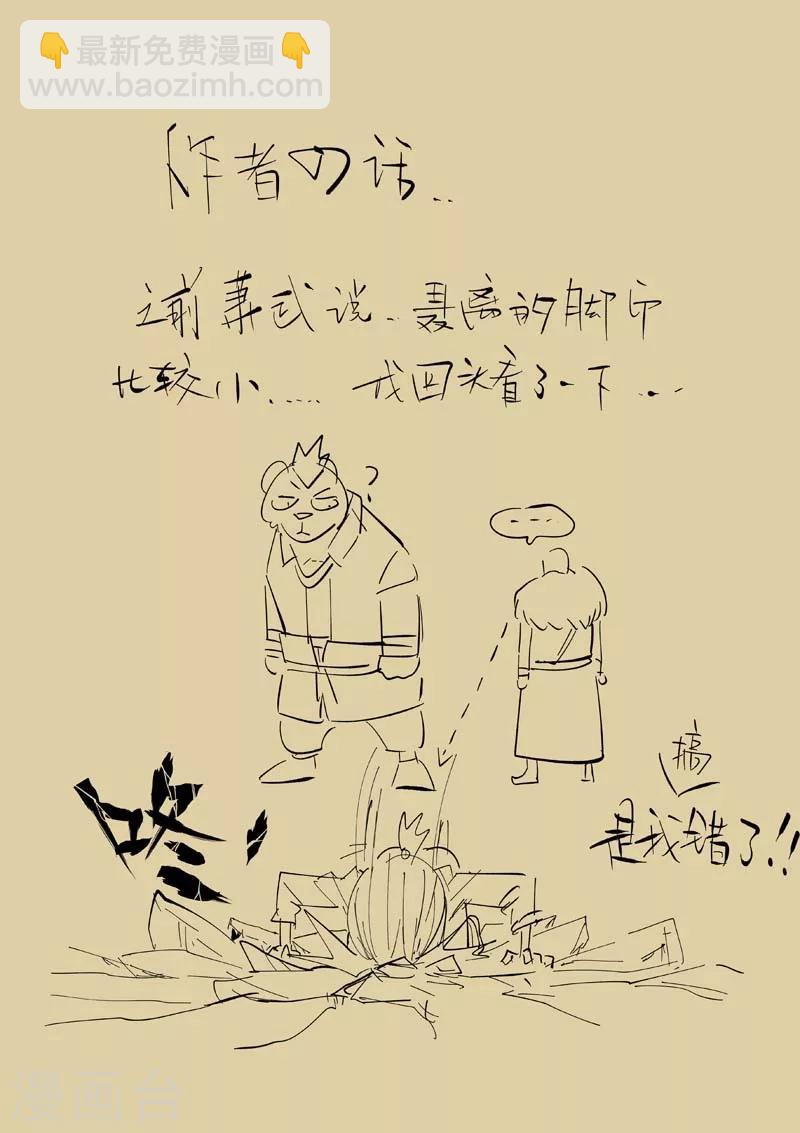 👇最新免费漫画👇
www.baozimh.com
作者の话..
之前 说、聂离的脚印
比较小...... 我回头看了一下...
?
....
搞
是我错了!!
咚!
漫画台